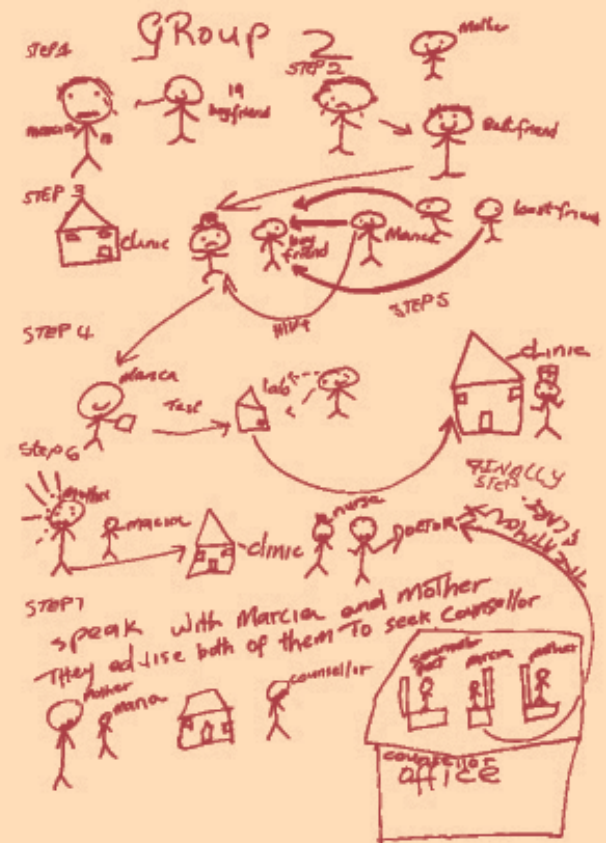 GROUP 2
STEP 1
marcia
19
boyfriend
STEP 2
Mother
Best friend
STEP 3
clinic
boy
friend
Marcia
best friend
HIV+
STEP 5
STEP 4
Marcia
Test
lab
clinic
Step 6
mother
marcia
clinic
nurse
DOCTOR
FINALLY
STEP 8
START
TREATMENT
STEP 7
speak with Marcia and mother
They advise both of them To seek Counsellor
mother
maria
counsellor
counsellor
marcia
mother
counsellor
office